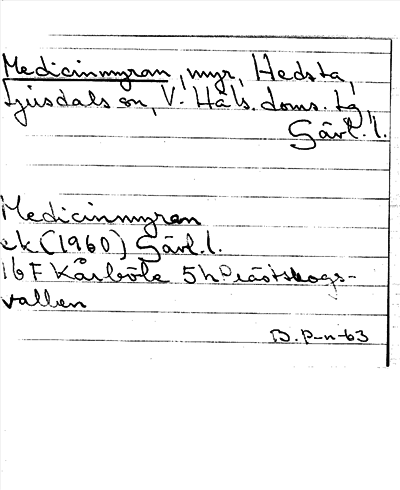 Medicinmyran, myr, Hedsta,
Ljusdals sn, V. Häls. doms. tg,
Gävl. l.
Medicinmyran
ek (1960) Gävl. l.
16 F Kårböle 5 h
vallen
B. P-n-63